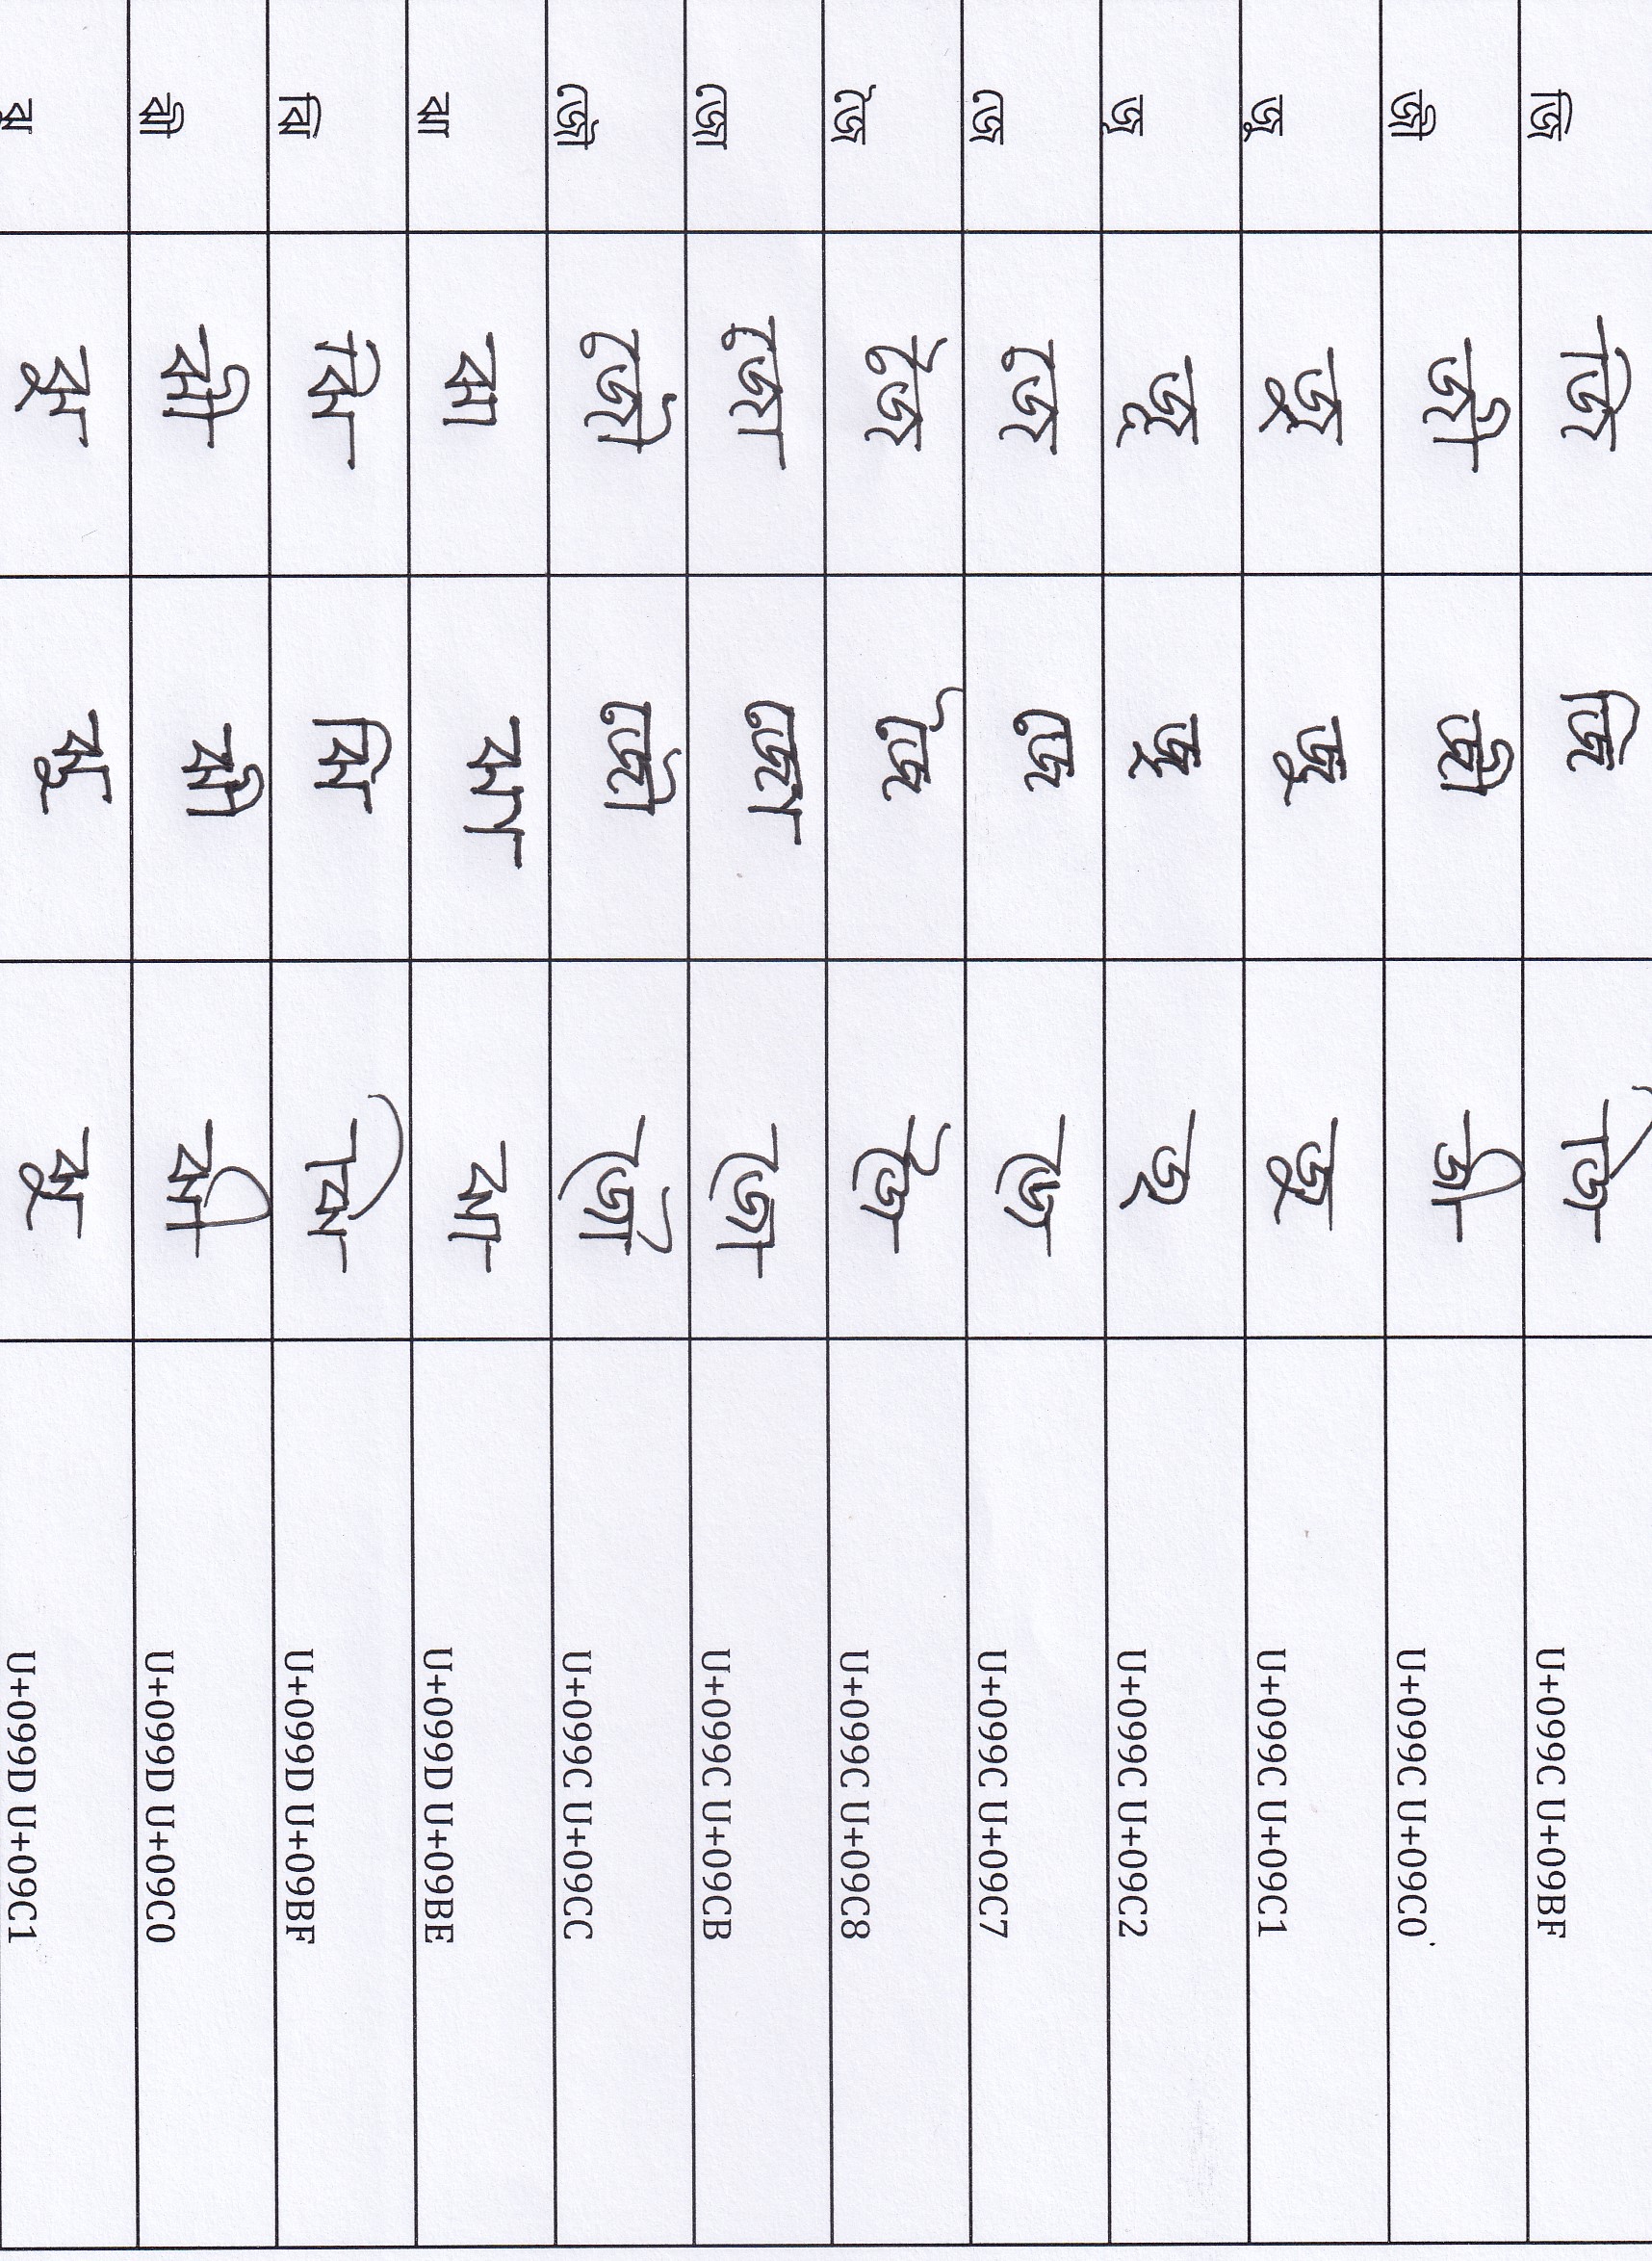 জি জি জি জি U+099C U+09BF
জী জী জী জী U+099C U+09C0
জু জু জু জু U+099C U+09C1
জূ জূ জূ জূ U+099C U+09C2
জে জে জে জে U+099C U+09C7
জৈ জৈ জৈ জৈ U+099C U+09C8
জো জো জো জো U+099C U+09CB
জৌ জৌ জৌ জৌ U+099C U+09CC
ঝা ঝা ঝা ঝা U+099D U+09BE
ঝি ঝি ঝি ঝি U+099D U+09BF
ঝী ঝী ঝী ঝী U+099D U+09C0
ঝু ঝু ঝু ঝু U+099D U+09C1